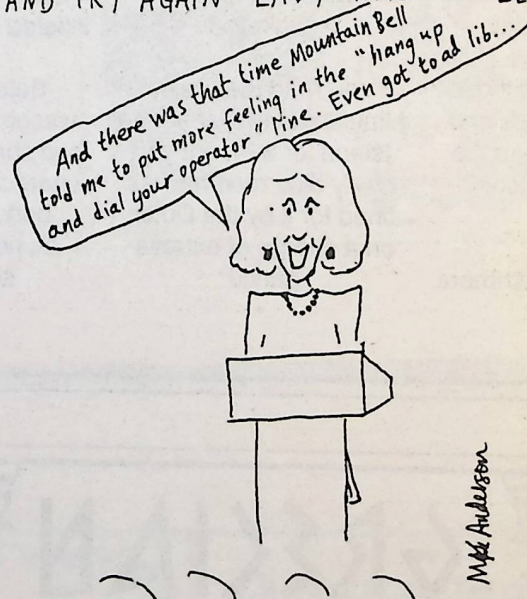 AND TRY AGAIN
And there was that time Mountain Bell
told me to put more feeling in the "hang up
and dial your operator" line. Even got to ad lib...
Anderson